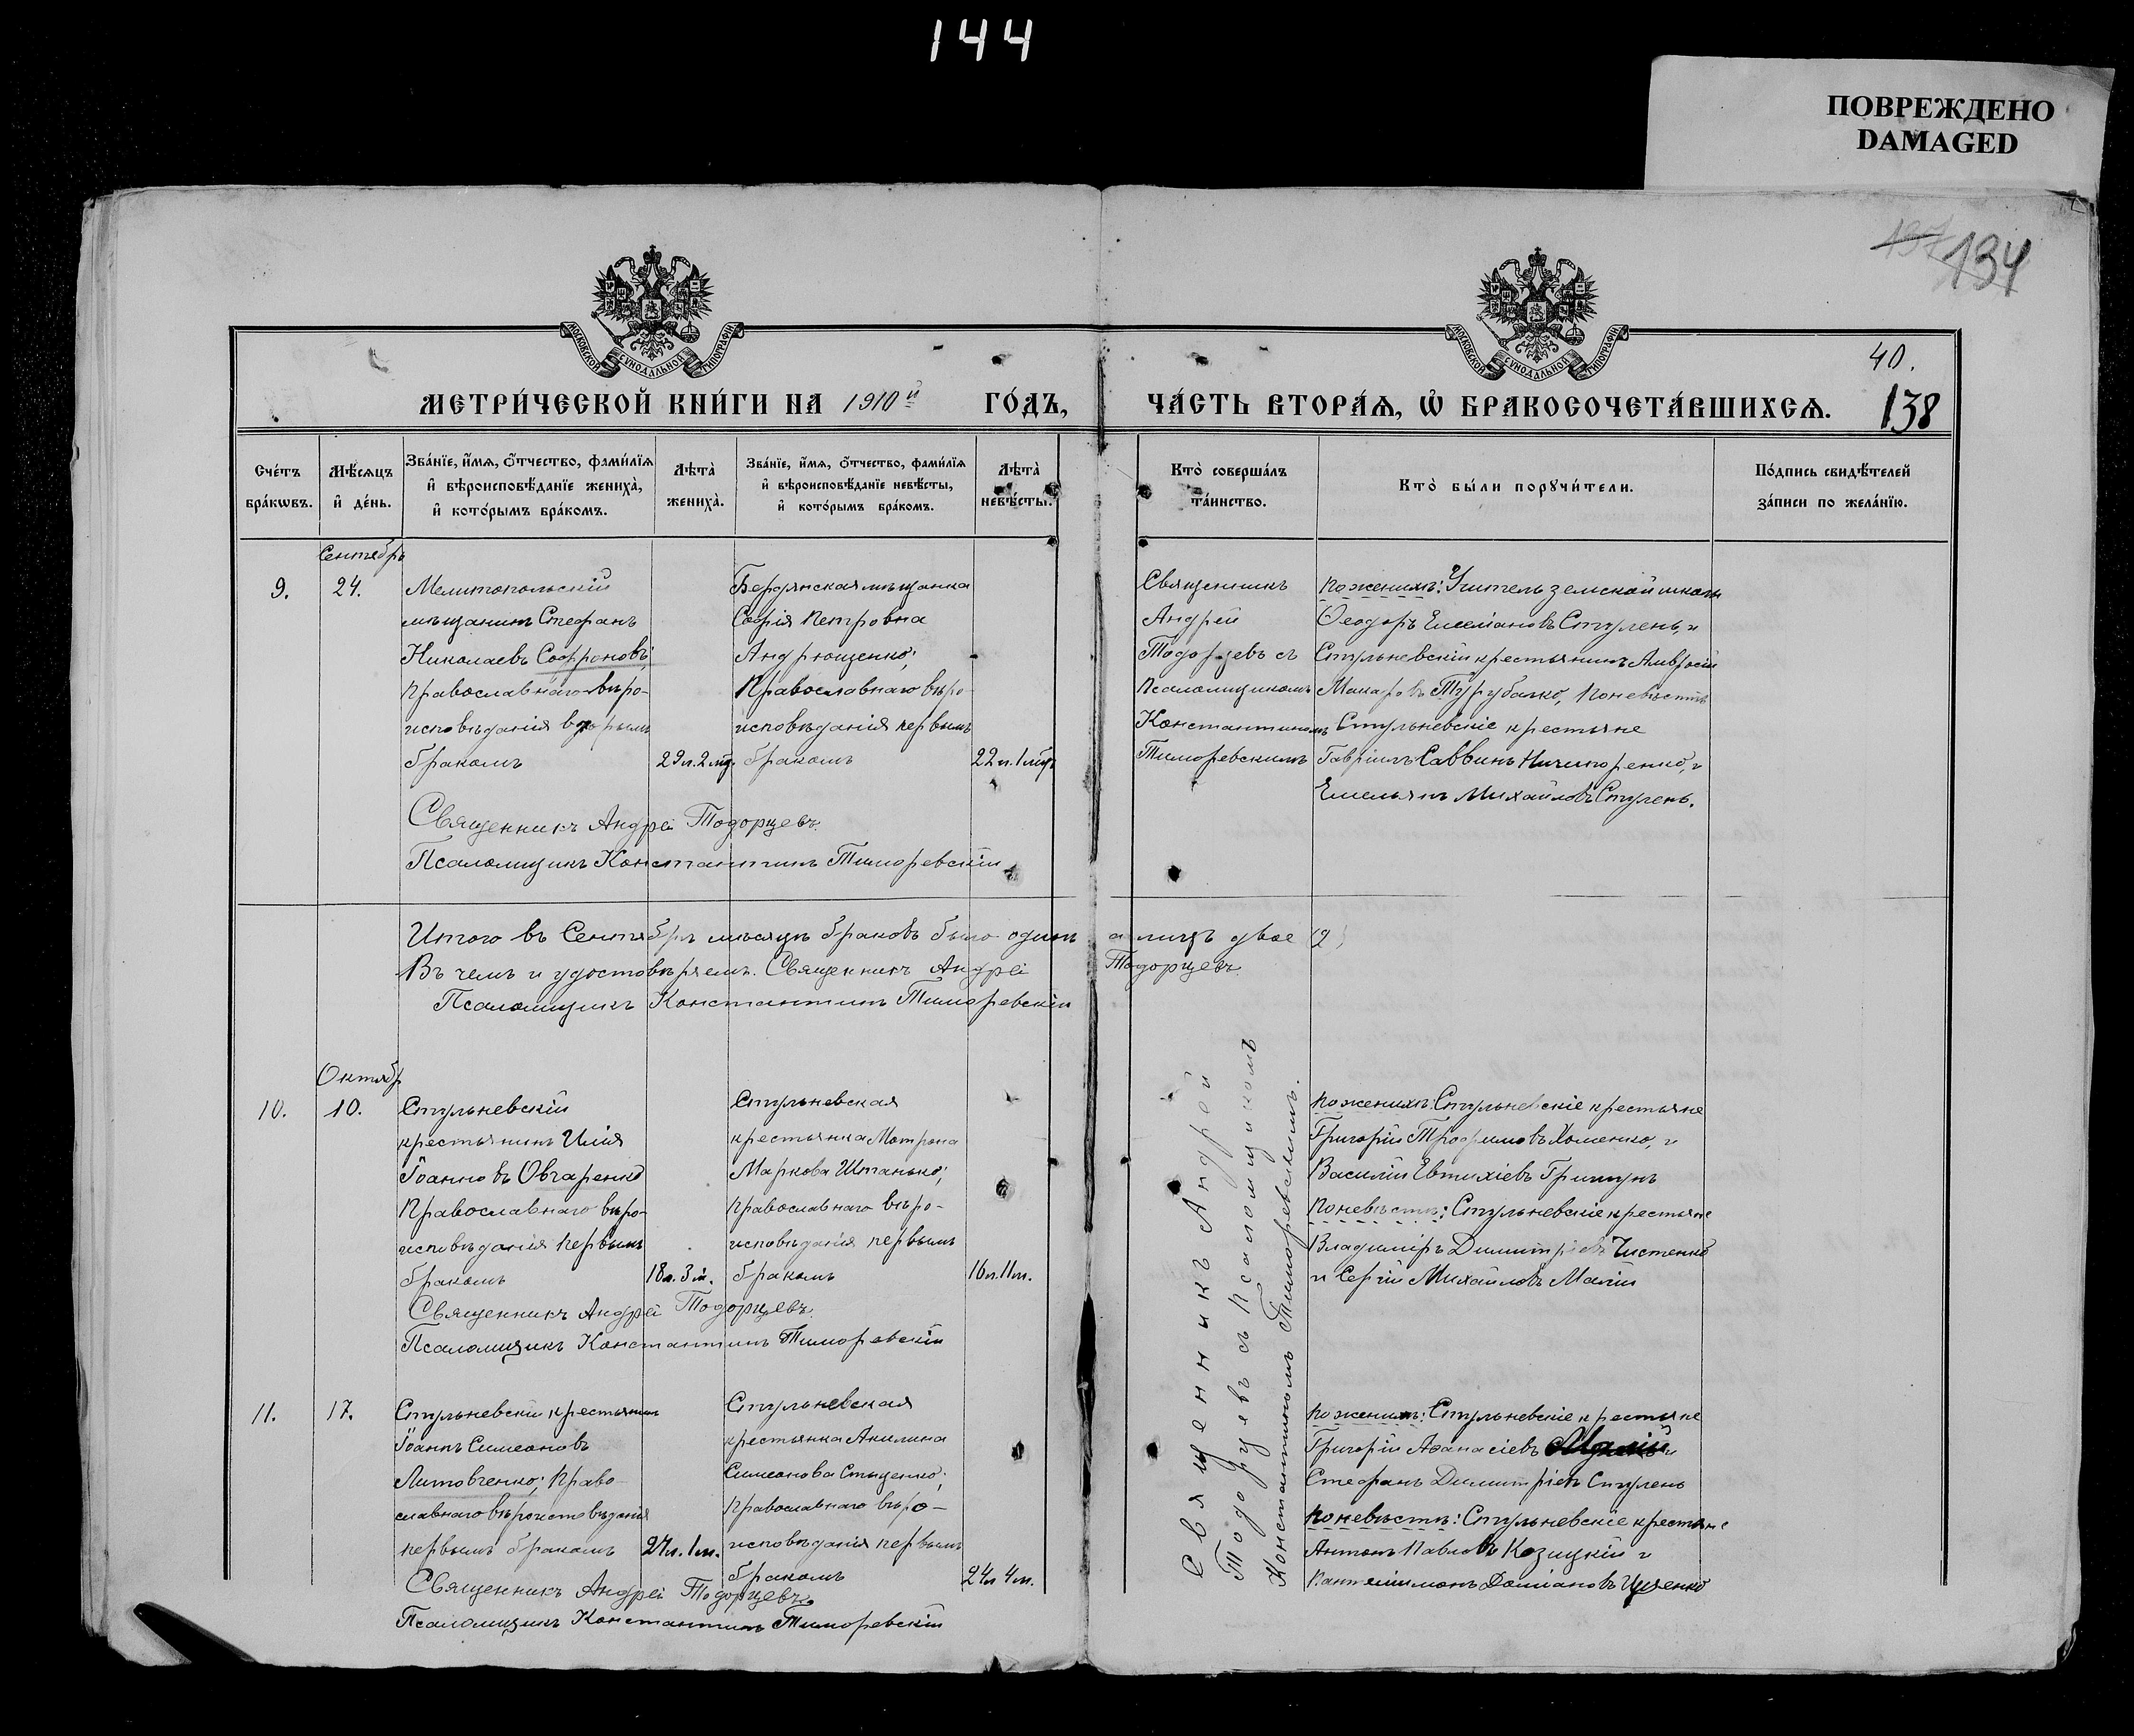 144
ПОВРЕЖДЕНО
DAMAGED
134
40.
138
МОСКОВСКОЙ СѴНОДАЛЬНОЙ ТИПОГРАФІИ
МОСКОВСКОЙ СѴНОДАЛЬНОЙ ТИПОГРАФІИ
МЕТРИ́ЧЕСКОЙ КНИ́ГИ НА 1910й ГО́ДЪ,
ЧА́СТЬ ВТОРА́Ѧ, Ѽ БРАКОСОЧЕТА́ВШИХСѦ.
Сче́тъ
бра́кѡвъ.
Мѣ́сѧцъ
и҆ де́нь.
Зва́нїе, и҆́мѧ, ѻ҆́тчество, фами́лїѧ
и҆ вѣроисповѣ́данїе жениха̀,
и҆ кото́рымъ бра́комъ.
Лѣта̀
жениха̀.
Зва́нїе, и҆́мѧ, ѻ҆́тчество, фами́лїѧ
и҆ вѣроисповѣ́данїе невѣ́сты,
и҆ кото́рымъ бра́комъ.
Лѣта̀
невѣ́сты.
Кто̀ соверша́лъ
та́инство.
Кто̀ бы́ли порꙋчи́тели.
По́дпись свидѣ́телей
за́писи по жела́нїю.
Сентябрь
9.
24.
Мелитопольскій
мѣщанинъ Стефанъ
Николаевъ Софроновъ;
православнаго вѣро-
исповѣданія вторымъ
бракомъ
29 л. 2 мѣ.
Бердянская мѣщанка
Софія Петровна
Андрющенко;
православнаго вѣро-
исповѣданія первымъ
бракомъ
22 л. 1 мѣ.
Священникъ
Андрей
Тодорцевъ съ
псаломщикомъ
Константиномъ
Тиморевскимъ
по женихѣ: Учитель земской школы
Ѳеодоръ Емеліановъ Ступень, и
Стульневскій крестьянинъ Амвросій
Макаровъ Турубалко, по невѣстѣ
Стульневскіе крестьяне
Гавріилъ Саввинъ Ничипоренко, и
Емельянъ Михайловъ Ступень.
Священникъ Андрей Тодорцевъ.
Псаломщикъ Константинъ Тиморевскій
Итого въ Сентябрѣ мѣсяцѣ браковъ было одинъ а лицъ двое (2)
Въ чемъ и удостовѣряемъ. Священникъ Андрей Тодорцевъ.
Псаломщикъ Константинъ Тиморевскій
Октябрь
10.
10.
Стульневскій
крестьянинъ Илія
Іоанновъ Овчаренко
православнаго вѣро-
исповѣданія первымъ
бракомъ
18 л. 3 м.
Стульневская
крестьянка Матрона
Маркова Штанько;
православнаго вѣро-
исповѣданія первымъ
бракомъ
16 л. 11 м.
Священникъ Андрей
Тодорцевъ съ псаломщикомъ
Константиномъ Тиморевскимъ.
по женихѣ: Стульневскіе крестьяне
Григорій Трофимовъ Хоменко, и
Василій Евтихіевъ Гришунъ
по невѣстѣ: Стульневскіе крестьяне
Владиміръ Димитріевъ Чистенко
и Сергій Михайловъ Малій
Священникъ Андрей Тодорцевъ.
Псаломщикъ Константинъ Тиморевскій
11.
17.
Стульневскій крестьянинъ
Іоаннъ Симеоновъ
Литовченко; право-
славнаго вѣроисповѣданія
первымъ бракомъ
27 л. 1 м.
Стульневская
крестьянка Акилина
Симеонова Стыценко;
православнаго вѣро-
исповѣданія первымъ
бракомъ
24 л 4 м.
по женихѣ: Стульневскіе крестьяне
Григорій Аѳанасіевъ и
Стефанъ Димитріевъ Ступень
по невѣстѣ: Стульневскіе крестьяне
Антонъ Павловъ Козицкій и
Пантелиимонъ Доміановъ Ищенко
Священникъ Андрей Тодорцевъ.
Псаломщикъ Константинъ Тиморевскій